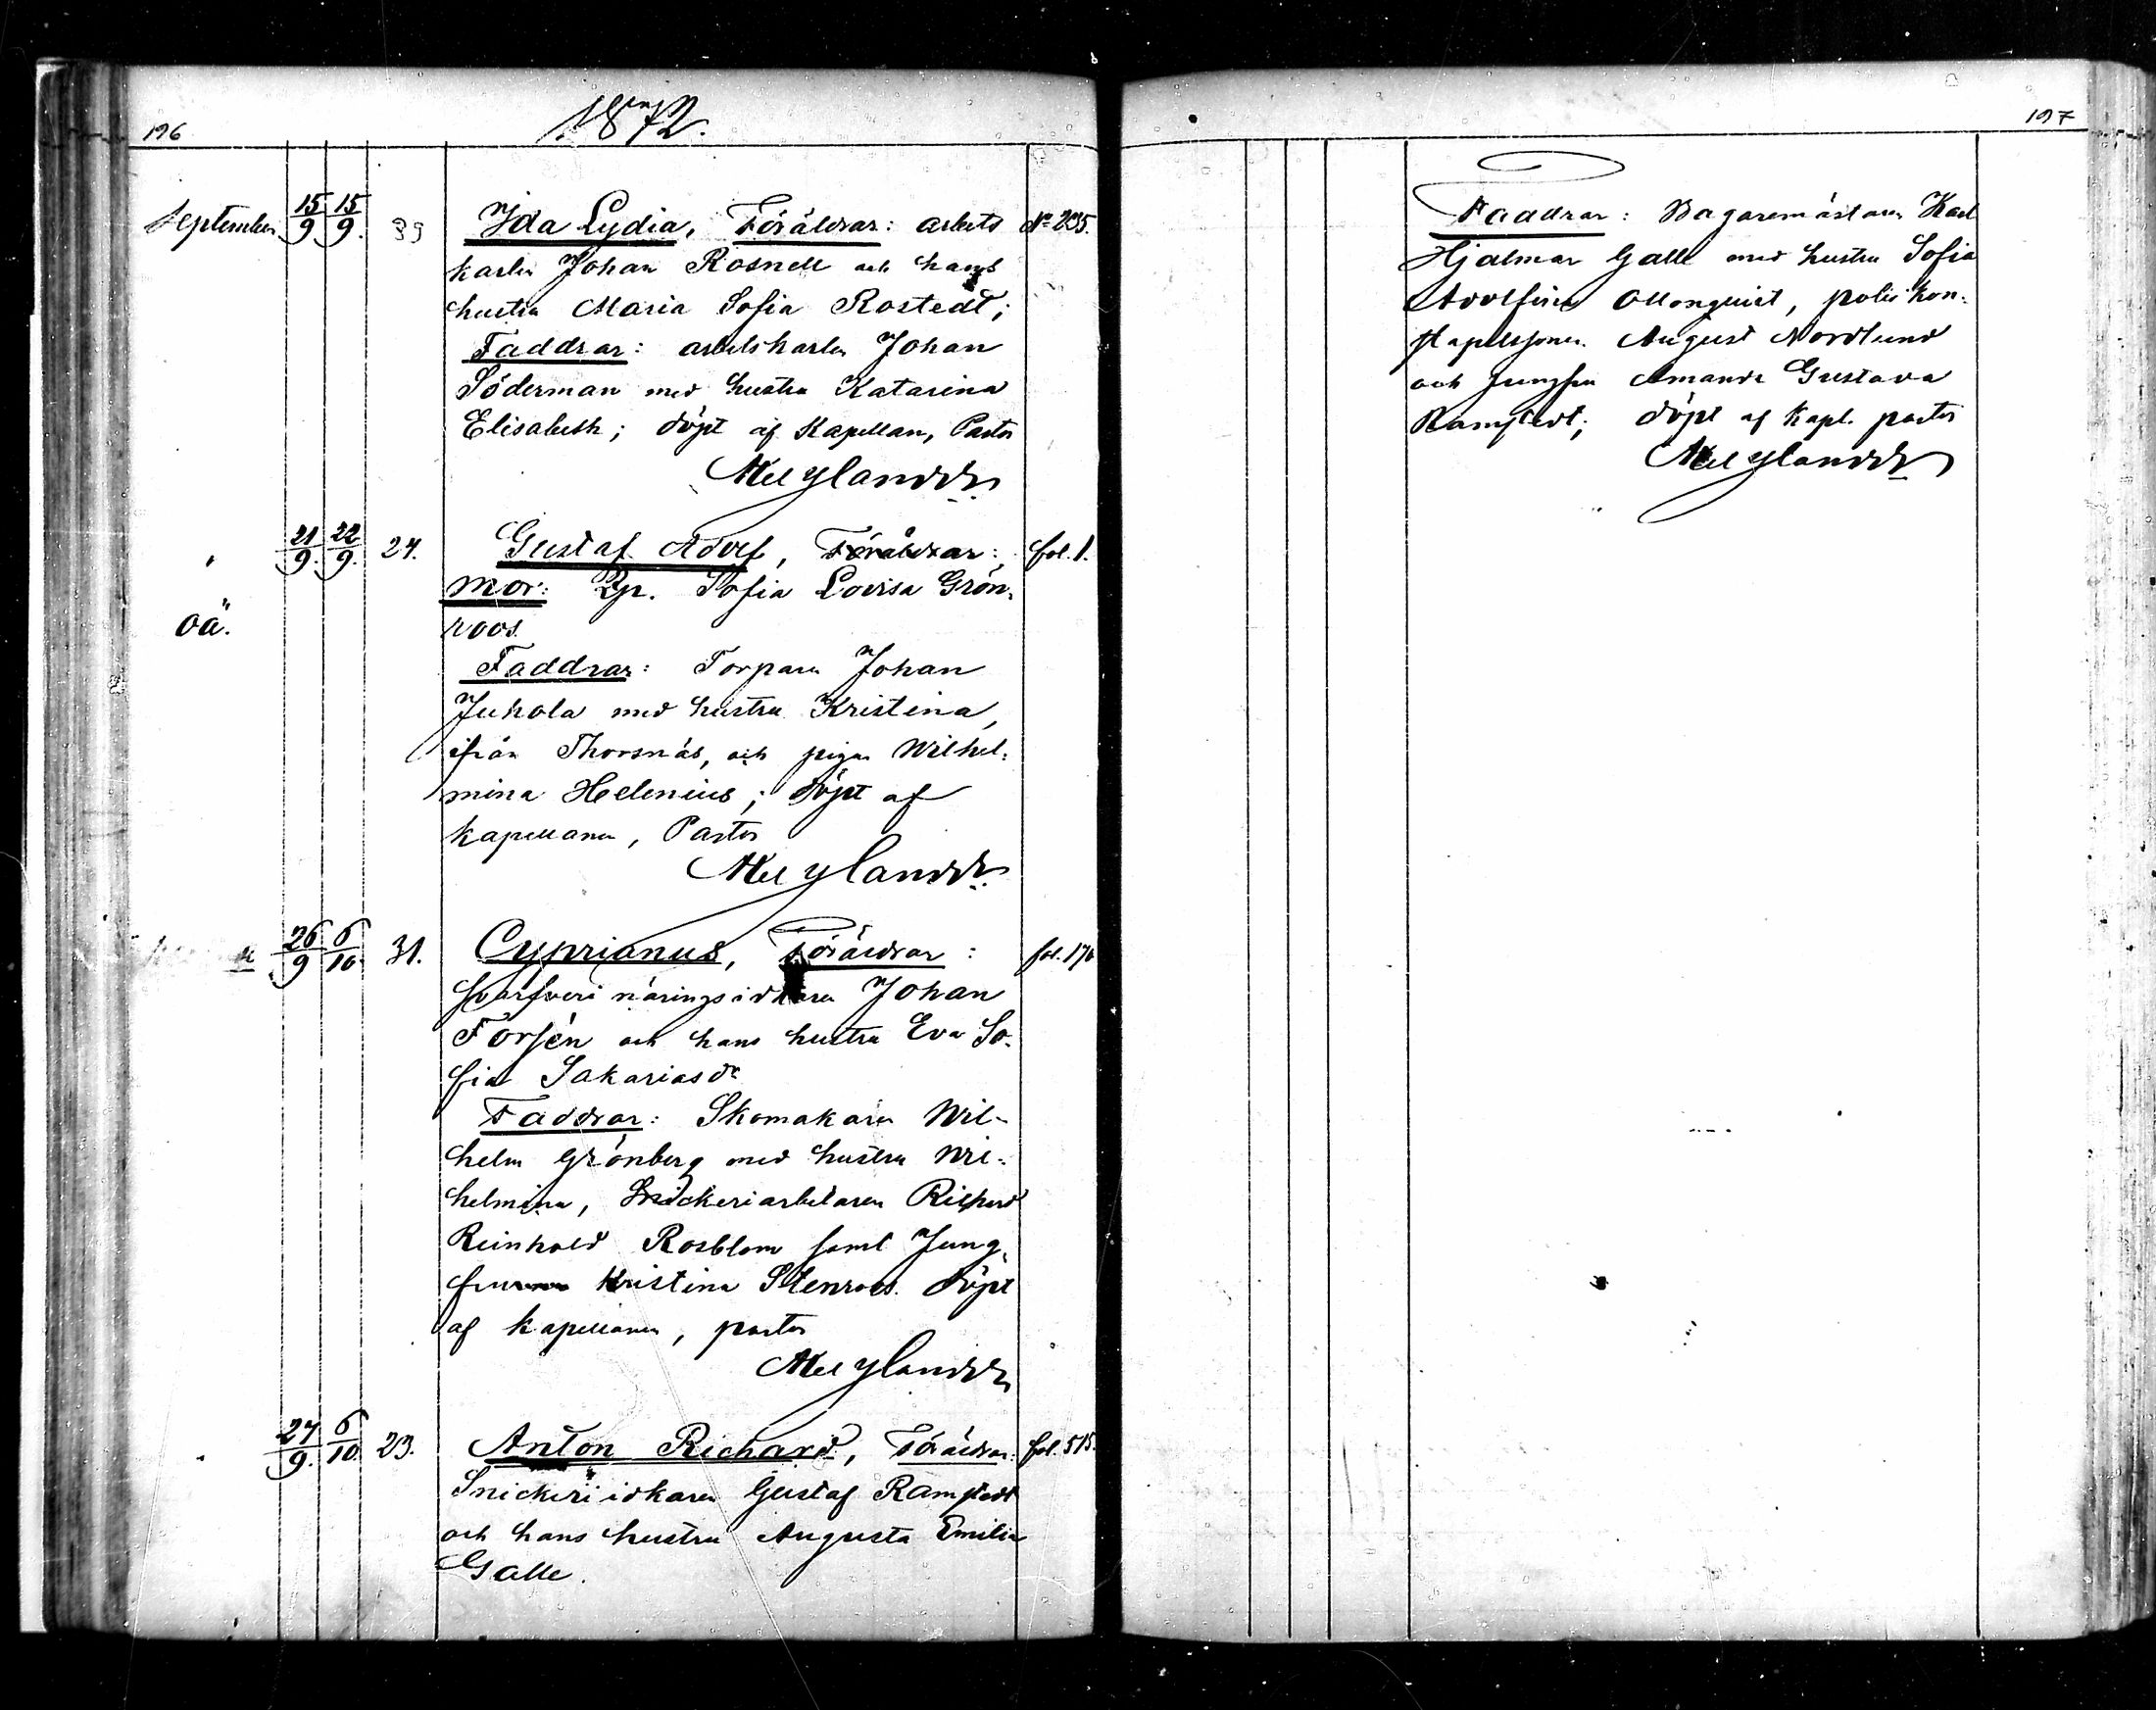 196
1872.
September. 15/9 15/9. 39 Ida Lydia, Föräldrar: arbets No 235.
karlen Johan Rosnell och hans
hustru Maria Sofia Rostedt;
Faddrar: arbetskarlen Johan
Söderman med hustru Katarina
Elisabeth; döpt af Kapellan, Pastor
Ax Nylander
21/9. 22/9. 24. Gustaf Adolf, Föräldrar: fol. 1.
mor: Pig. Sofia Lovisa Grön-
oä. roos.
Faddrar: Torparen Johan
Juhola med hustru Kristina,
ifrån Thorsnäs, och pigan Wilhel-
mina Helenius; döpt af
kapellanen, Pastor
Ax Nylander
26/9 6/10 31. Cyprianus, Föräldrar: fol. 176
Svarfveri näringsidkaren Johan
Forsén och hans hustru Eva So-
fia Sakariasdr
Faddrar: Skomakaren Wil-
helm Grönberg med hustru Wil-
helmina, Snickeriarbetaren Richard
Reinhold Rosblom samt Jung-
frun Kristina Stenroos. döpt
af kapellanen, pastor
Ax Nylander
27/9. 6/10. 23. Anton Richard, Föräldrar: fol. 515.
Snickeriidkaren Gustaf Ramstedt
och hans hustru Augusta Emilia
Galle.
197
Faddrar: Bagaremästaren Karl
Hjalmar Galle med hustru Sofia
Adolfina Ollonquist, polis kon-
stapelssonen August Nordlund
och Jungfru Amanda Gustava
Ramstedt; döpt af Kapl. pastor
Ax Nylander